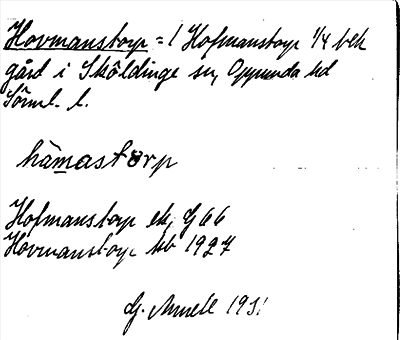 Hovmanstorp = / Hofmanstorp 1/4 bek
gård i Sköldinge sn, Oppunda hd
Sörml. l.
håmastorp
Hofmanstorp ek, G 66
Hovmanstorp kb 1927
G. Amell 1931